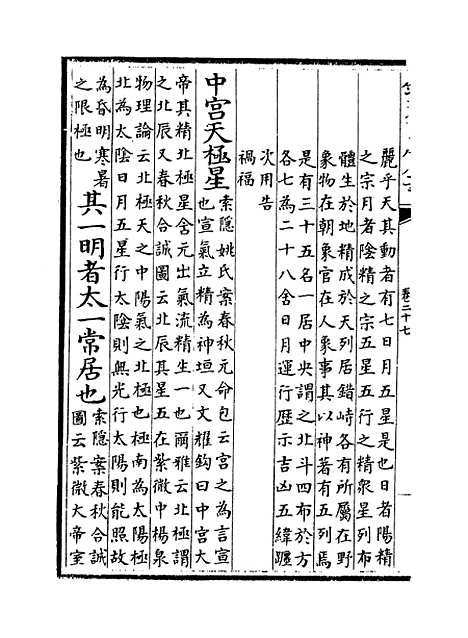 卷二十七
麗乎天其動者有七日月五星是也日者陽精
之宗月者陰精之宗五星五行之精衆星列布
體生於地精成於天列居錯峙各有所屬在野
象物在朝象官在人象事其以神著有五列焉
是有三十五名一居中央謂之北斗四布於方
各七為二十八舍日月運行歴示吉凶五緯躔
次用告
禍福
中宮天極星
索隱姚氏案春秋元命包云宮之為言宣
也宣氣立精為神垣又文耀鈎曰中宮大
帝其精北極星含元出氣流精生一也爾雅云北極謂
之北辰又春秋合誠圖云北辰其星五在紫微中楊泉
物理論云北極天之中陽氣之北極也極南為太陽極
北為太陰日月五星行太陰則無光行太陽則能照故
為昏明寒暑
之限極也
其一明者太一常居也
索隱案春秋合誠
圖云紫微大帝室